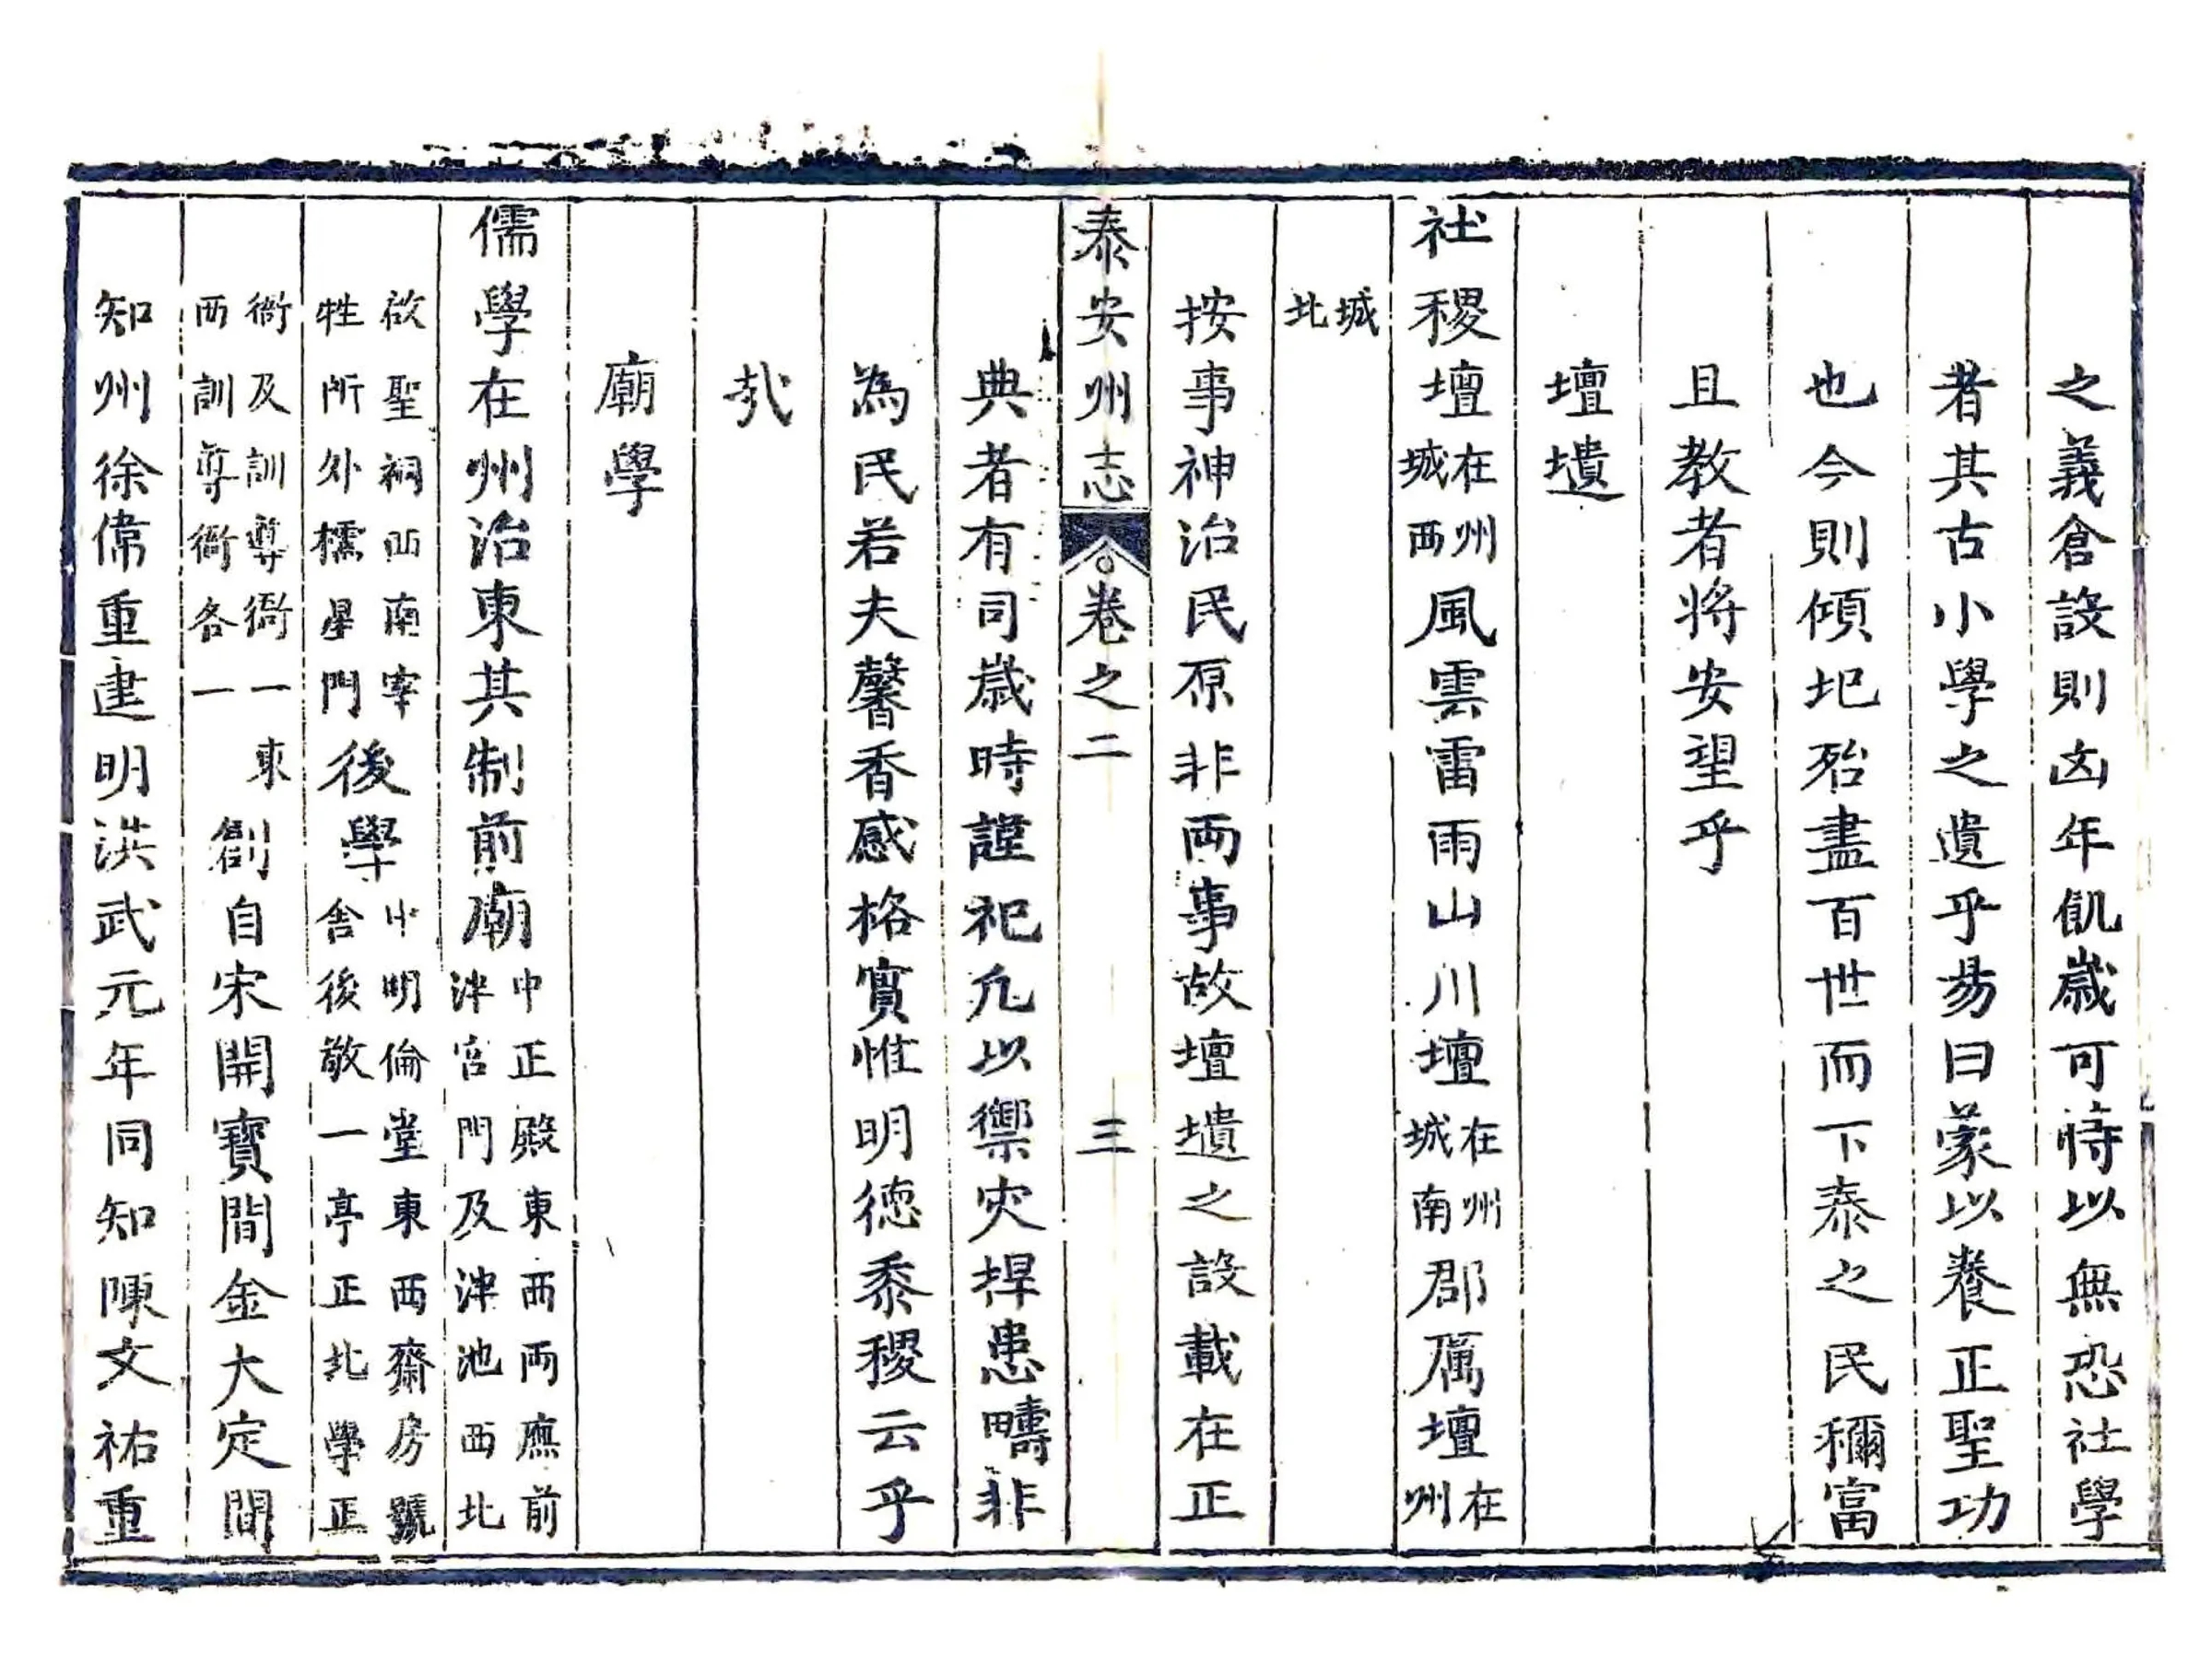 之義倉設則凶年飢歲可恃以無恐社學
者其古小學之遺乎易曰蒙以養正聖功
也今則傾圮殆盡百世而下泰之民穪富
且教者將安望乎
壇壝
社稷壇在州城西風雲雷雨山川壇在州城南郡厲壇在州
城北
按事神治民原非兩事故壇壝之設載在正
泰安州志 卷之二 三
典者有司歲時謹祀凡以禦灾捍患疇非
為民若夫馨香感格實惟明德黍稷云乎
哉
廟學
儒學在州治東其制前廟中正殿東西兩廡前泮宮門及泮池西北
啟聖祠西南宰牲所外櫺星門後學中明倫堂東西齋房號舍後敬一亭正北學正
衙及訓導衙一東西訓導衙各一創自宋開寶間金大定間
知州徐偉重建明洪武元年同知陳文祐重